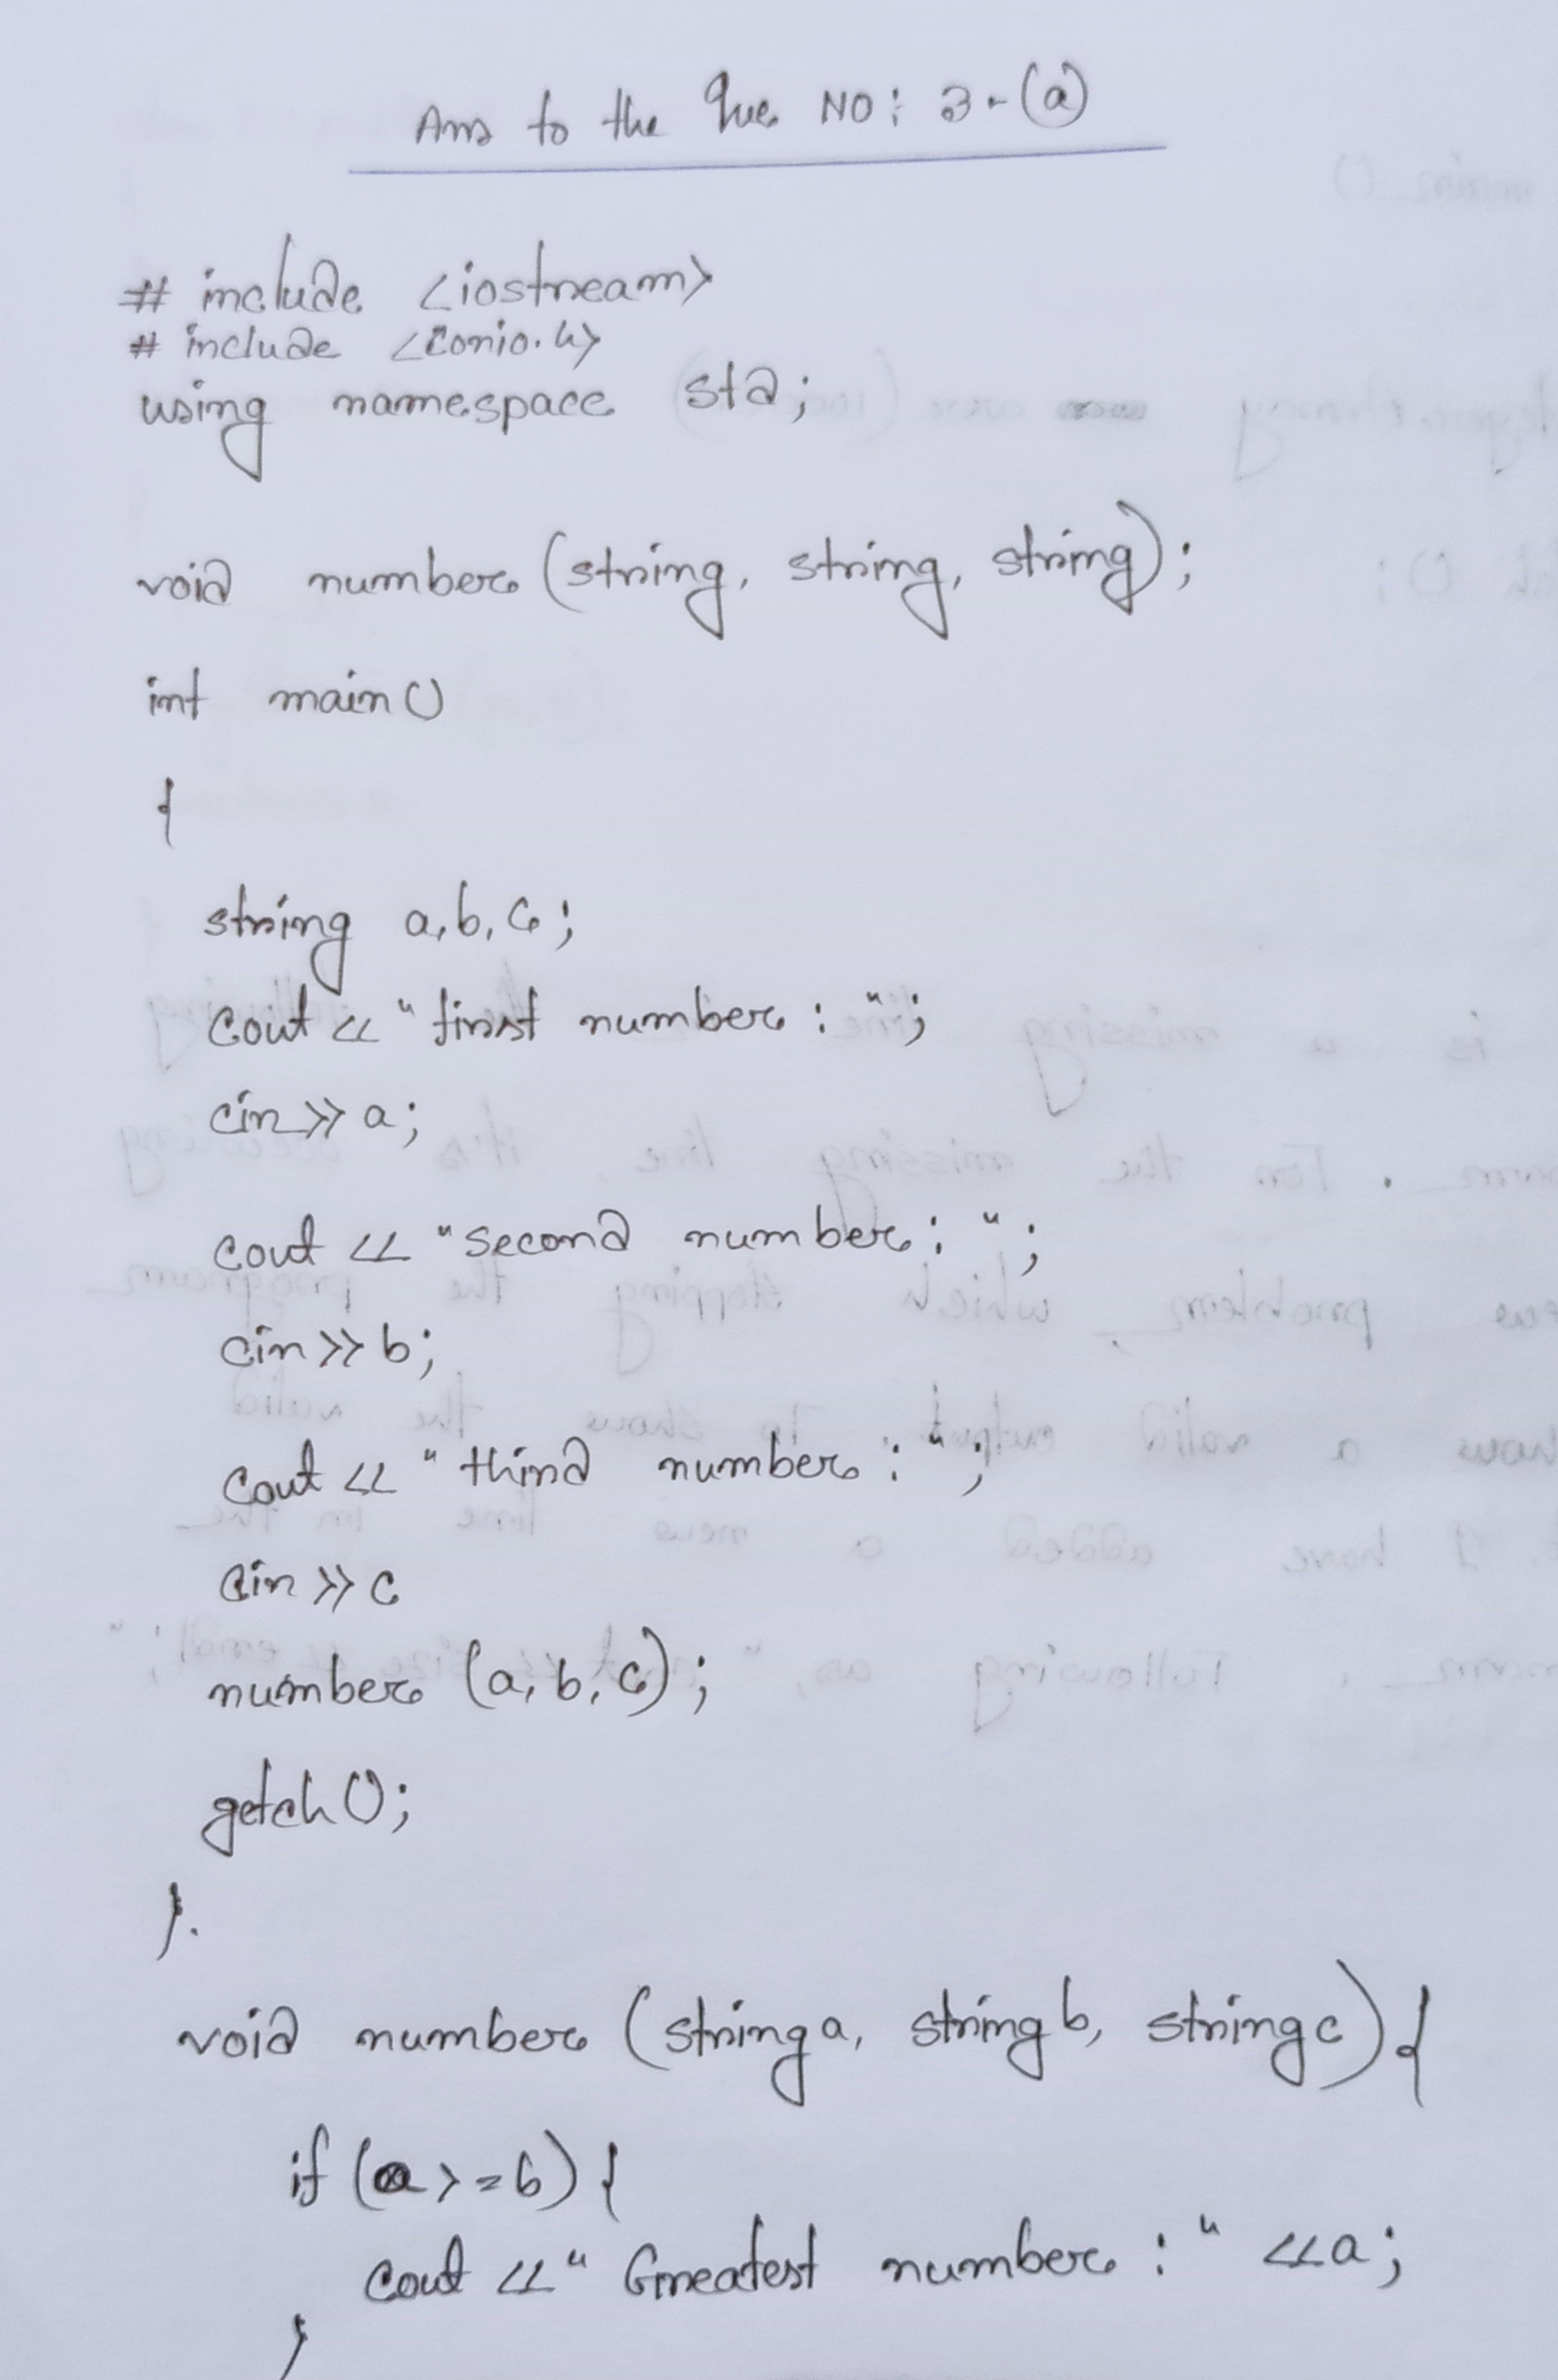 Ans to the Que NO: 3-(a)
# include <iostream>
# include <conio.h>
using namespace std;
void number (string, string, string);
int main()
{
string a, b, c;
cout << "first number : ";
cin >> a;
cout << "second number : ";
cin >> b;
cout << "third number : ";
cin >> c
number (a, b, c);
getch();
}.
void number (string a, string b, string c) {
if (a >= b) {
cout << " Greatest number : " << a;
}